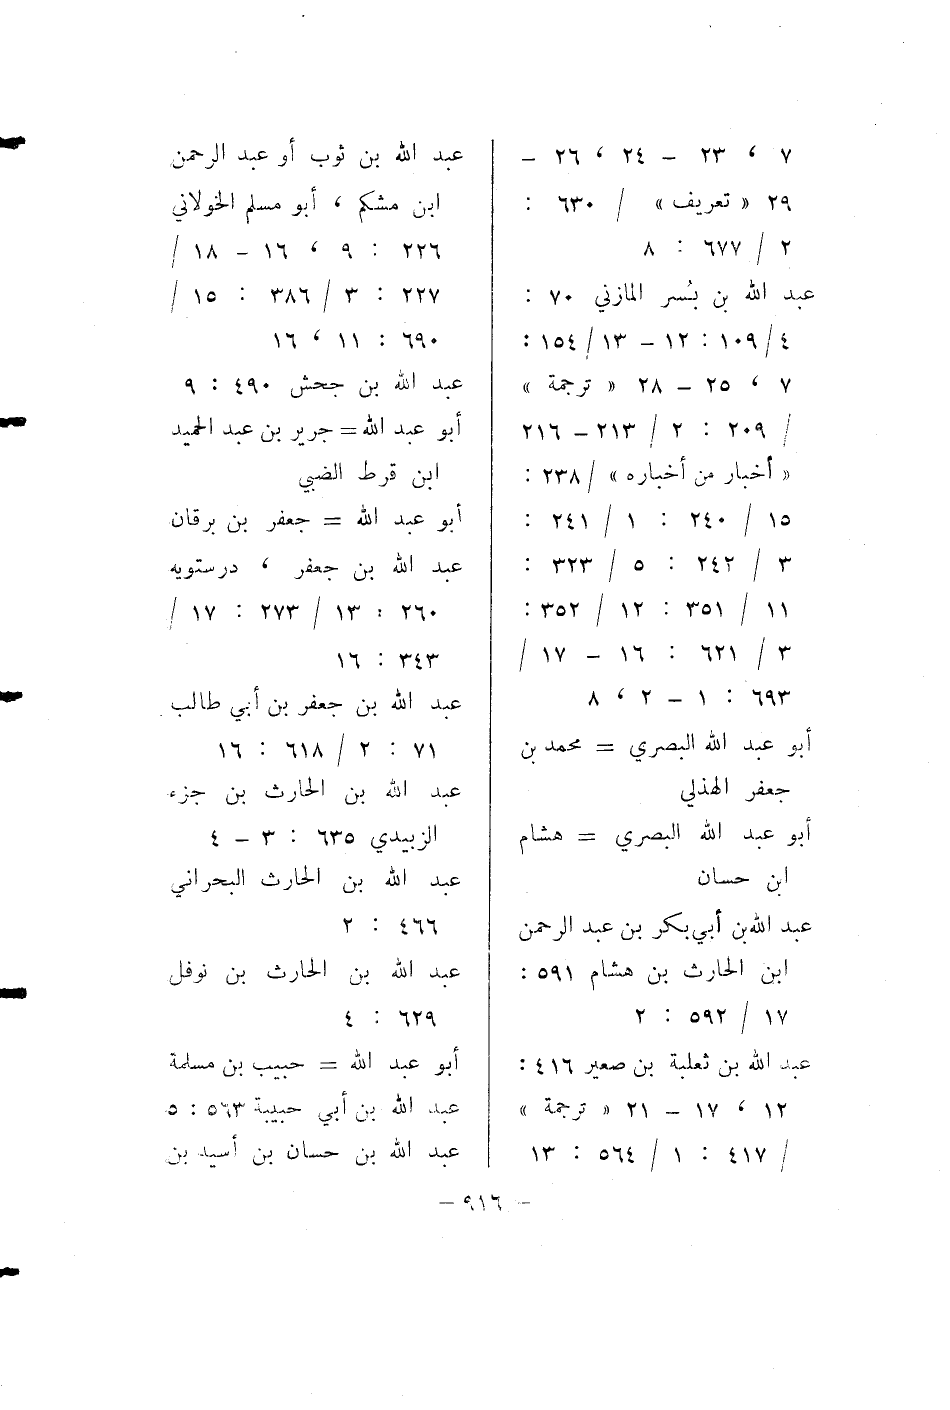 ٧ ، ٢٣ – ٢٤ ، ٢٦ –
٢٩ « تعريف » / ٦٣٠ :
٢ / ٦٧٧ : ٨
عبد الله بن بُسر المازني ٧٠ :
٤ / ١٠٩ : ١٢ – ١٣ / ١٥٤ :
٧ ، ٢٥ – ٢٨ « ترجمة »
/ ٢٠٩ : ٢ / ٢١٣ – ٢١٦
« أخبار من أخباره » / ٢٣٨ :
١٥ / ٢٤٠ : ١ / ٢٤١ :
٣ / ٢٤٢ : ٥ / ٣٢٣ :
١١ / ٣٥١ : ١٢ / ٣٥٢ :
٣ / ٦٢١ : ١٦ – ١٧ /
٦٩٣ : ١ – ٢ ، ٨
أبو عبد الله البصري = محمد بن
جعفر الهذلي
أبو عبد الله البصري = هشام
ابن حسان
عبد الله بن أبي بكر بن عبد الرحمن
ابن الحارث بن هشام ٥٩١ :
١٧ / ٥٩٢ : ٢
عبد الله بن ثعلبة بن صعير ٤١٦ :
١٢ ، ١٧ – ٢١ « ترجمة »
/ ٤١٧ : ١ / ٥٦٤ : ١٣
عبد الله بن ثوب أو عبد الرحمن
ابن مشكم ، أبو مسلم الخولاني
٢٢٦ : ٩ ، ١٦ – ١٨ /
٢٢٧ : ٣ / ٣٨٦ : ١٥ /
٦٩٠ : ١١ ، ١٦
عبد الله بن جحش ٤٩٠ : ٩
أبو عبد الله = جرير بن عبد الحميد
ابن قرط الضبي
أبو عبد الله = جعفر بن برقان
عبد الله بن جعفر ، درستويه
٢٦٠ : ١٣ / ٢٧٣ : ١٧ /
٣٤٣ : ١٦
عبد الله بن جعفر بن أبي طالب
٧١ : ٢ / ٦١٨ : ١٦
عبد الله بن الحارث بن جزء
الزبيدي ٦٣٥ : ٣ – ٤
عبد الله بن الحارث البحراني
٤٦٦ : ٢
عبد الله بن الحارث بن نوفل
٦٢٩ : ٤
أبو عبد الله = حبيب بن مسلمة
عبد الله بن أبي حبيبة ٥٦٣ : ٥
عبد الله بن حسان بن أسيد بن
– ٩١٦ –